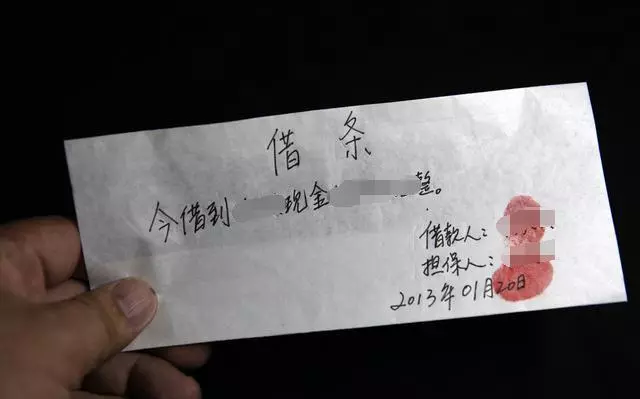 借条
今借到现金整。
借款人:
担保人:
2013年01月20日